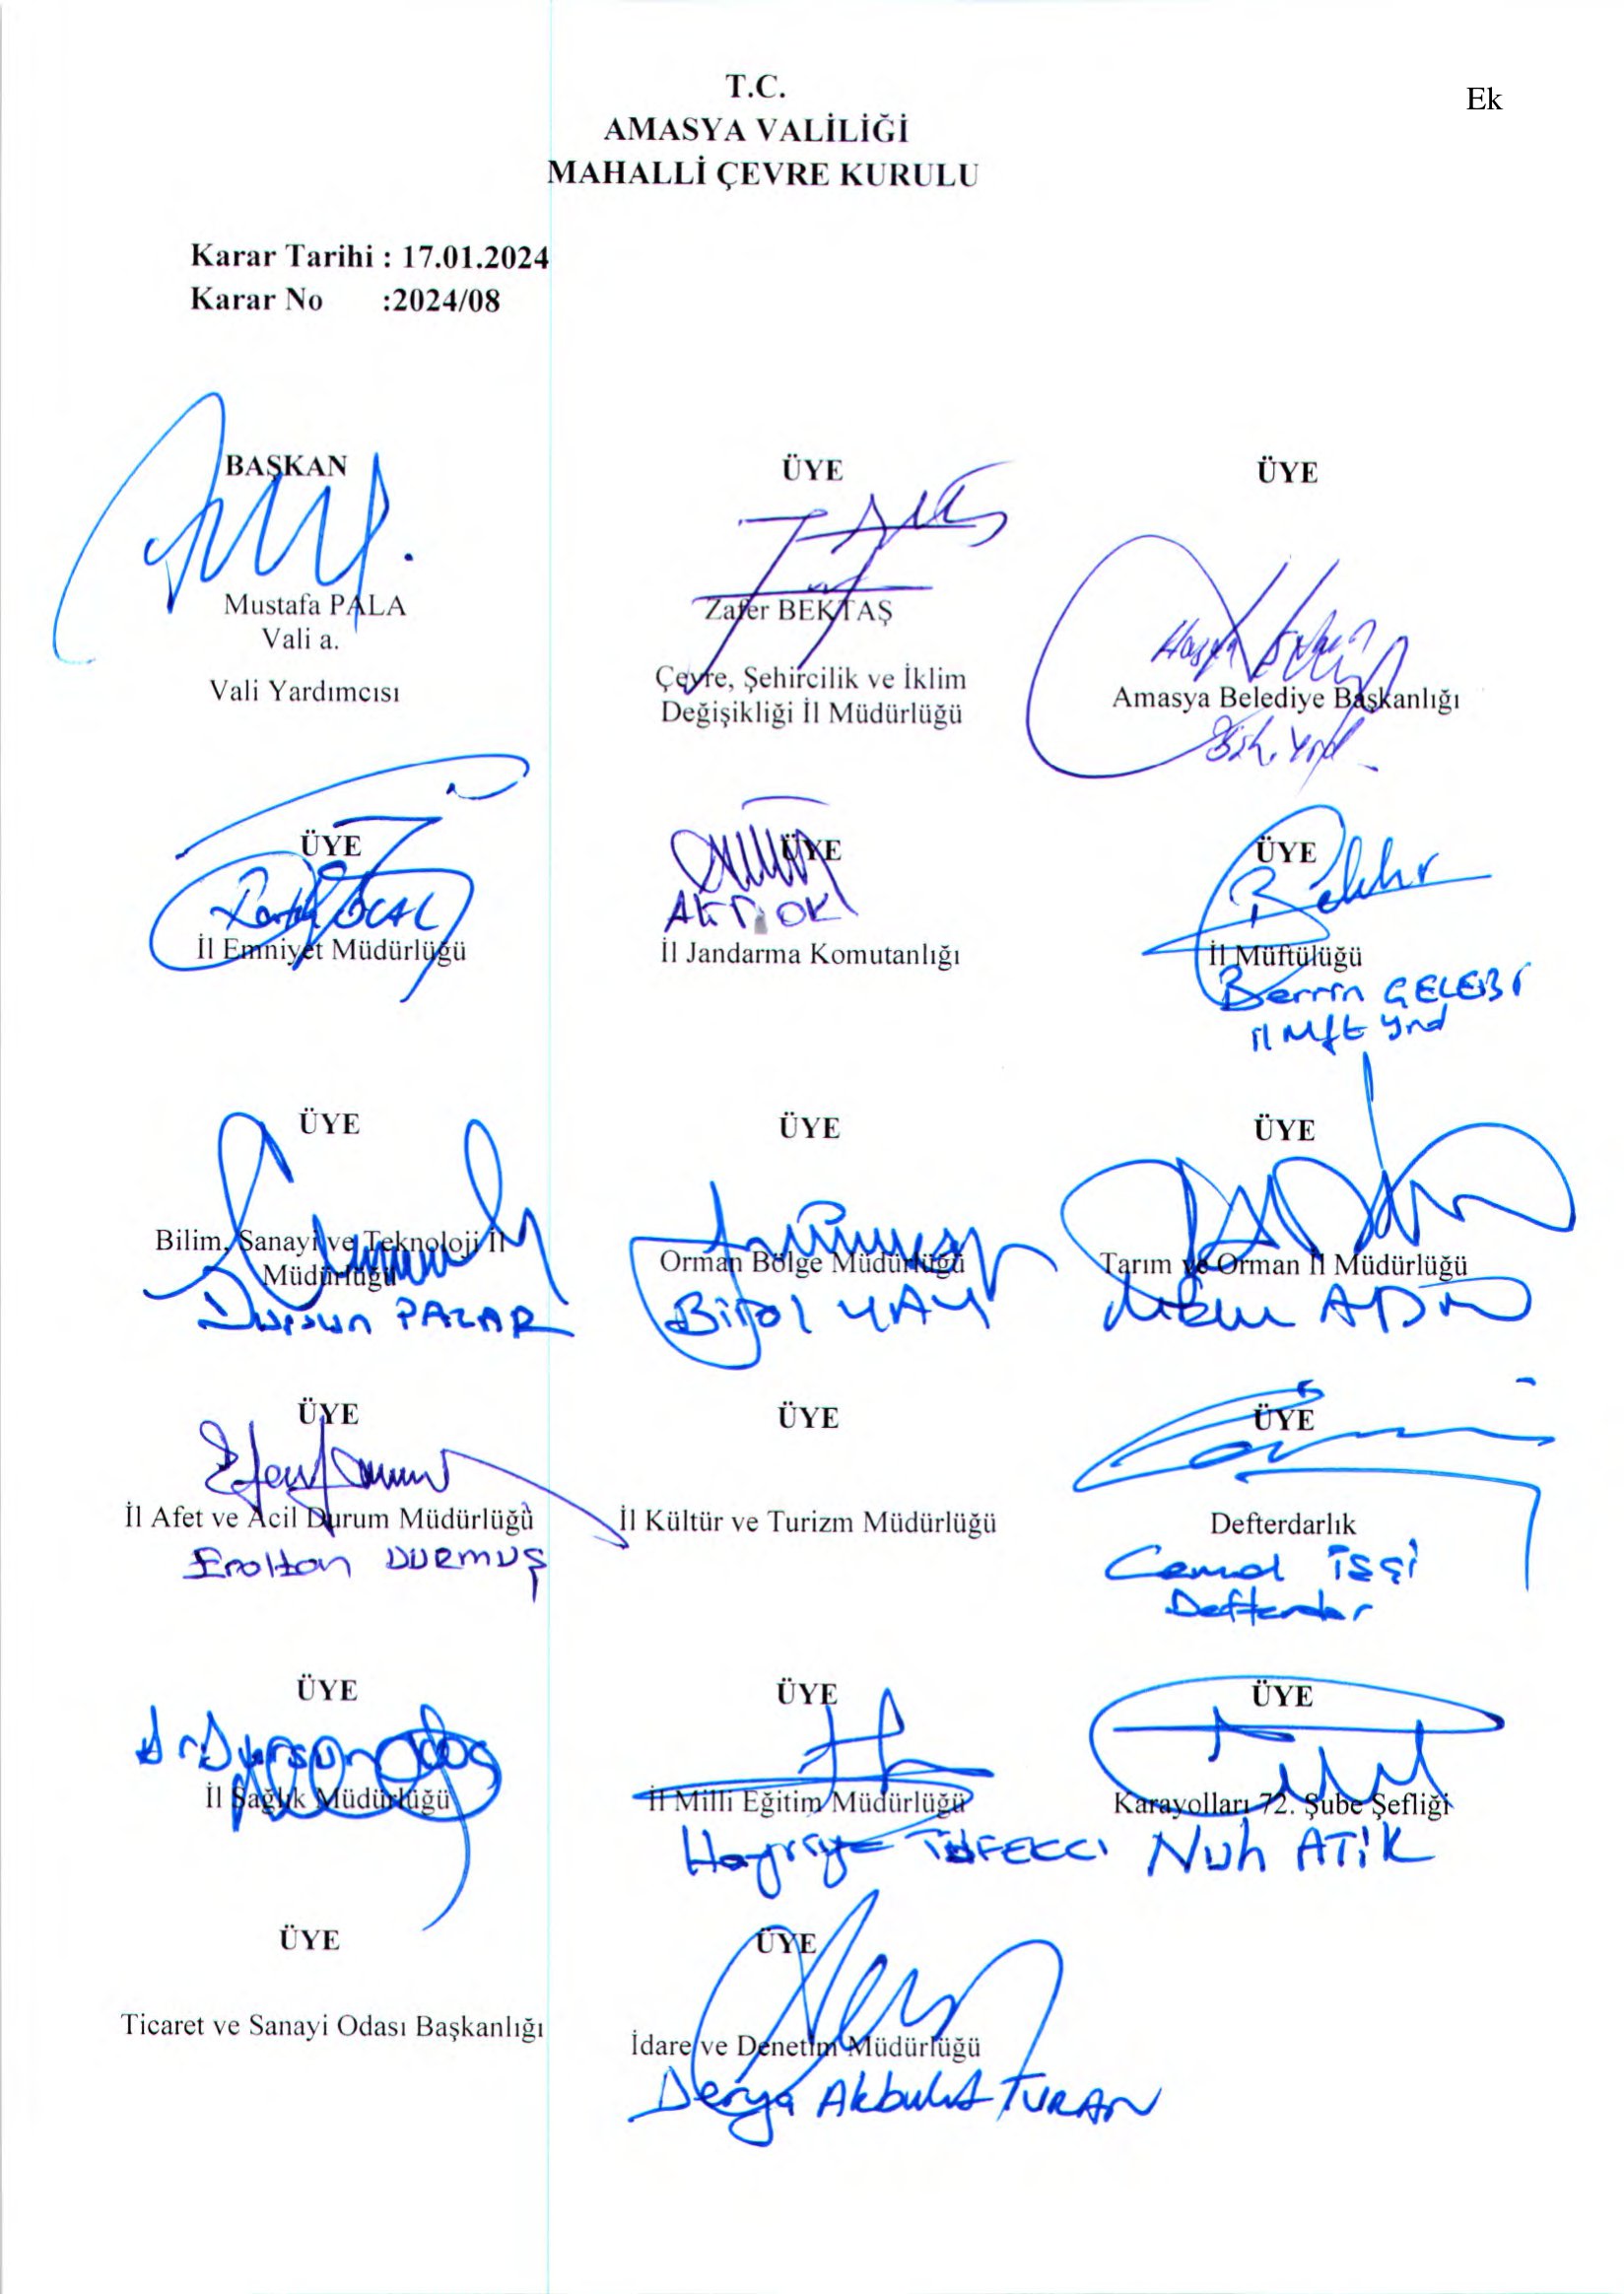 Ek
T.C.
AMASYA VALİLİĞİ
MAHALLİ ÇEVRE KURULU
Karar Tarihi : 17.01.2024
Karar No :2024/08
BAŞKAN
Mustafa PALA
Vali a.
Vali Yardımcısı
ÜYE
Zafer BEKTAŞ
Çevre, Şehircilik ve İklim
Değişikliği İl Müdürlüğü
ÜYE
Amasya Belediye Başkanlığı
Bşk. Yrd.
ÜYE
ÖCAL
İl Emniyet Müdürlüğü
ÜYE
İl Jandarma Komutanlığı
ÜYE
İl Müftülüğü
ÇELEBİ
İl Mft Yrd
ÜYE
Bilim, Sanayi ve Teknoloji İl
Müdürlüğü
Dursun PAZAR
ÜYE
Orman Bölge Müdürlüğü
Birol YAY
ÜYE
Tarım ve Orman İl Müdürlüğü
ÜYE
İl Afet ve Acil Durum Müdürlüğü
DURMUŞ
ÜYE
İl Kültür ve Turizm Müdürlüğü
ÜYE
Defterdarlık
Cemal İŞÇİ
Defterdar
ÜYE
Dr. Dursun
İl Sağlık Müdürlüğü
ÜYE
İl Milli Eğitim Müdürlüğü
Hayriye TÜFEKCİ
ÜYE
Karayolları 72. Şube Şefliği
Nuh ATİK
ÜYE
Ticaret ve Sanayi Odası Başkanlığı
ÜYE
İdare ve Denetim Müdürlüğü
Derya Akbulut TURAN